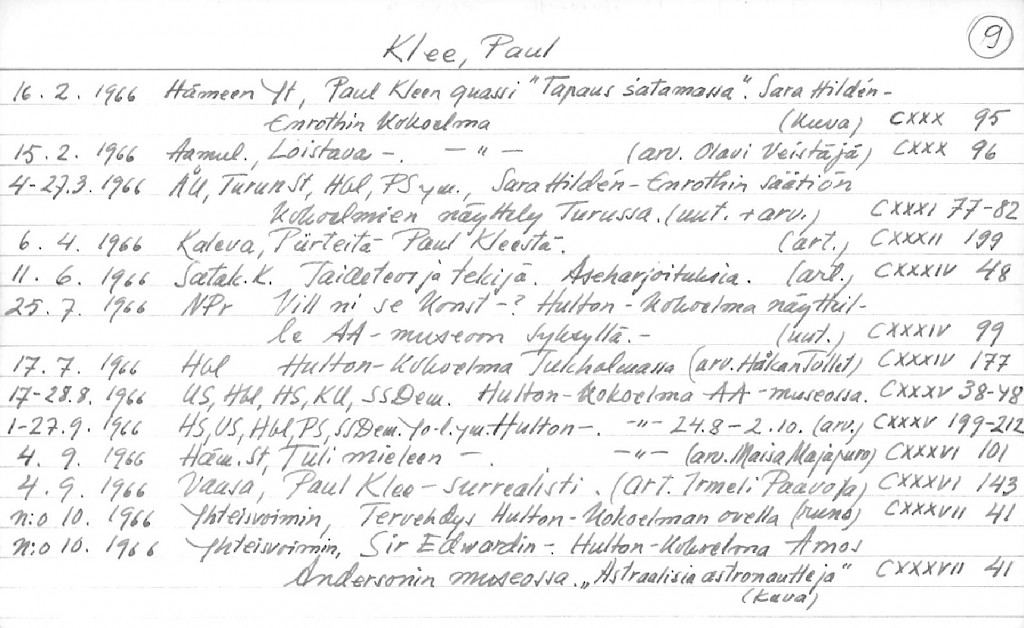 9
Klee, Paul
16. 2. 1966 Hämeen Yt, Paul Kleen quassi "Tapaus satamassa". Sara Hildén-
Enrothin kokoelma (kuva) CXXX 95
15. 2. 1966 Aamul., Loistava -. - " - (arv. Olavi Veistäjä) CXXX 96
4-27.3. 1966 ÅU, TurunSt, Hbl, PS ym., Sara Hildén-Enrothin säätiön
kokoelmien näyttely Turussa. (uut. + arv.) CXXXI 77-82
6. 4. 1966 Kaleva, Piirteitä Paul Kleestä. (art.) CXXXII 199
11. 6. 1966 Satak.K. Taideteos ja tekijä. Aseharjoituksia. (art.) CXXXIV 48
25. 7. 1966 NPr Vill ni se konst -? Hulton-kokoelma näyttil-
le AA-museoon syksyllä. - (uut.) CXXXIV 99
17. 7. 1966 Hbl Hulton-kokoelma Tukholmassa (arv. Håkan Tollet) CXXXIV 177
17-28.8. 1966 US, Hbl, HS, KU, SSDem. Hulton-kokoelma AA-museossa. CXXXV 38-48
1-27.9. 1966 HS, US, Hbl, PS, SSDem. Yo-l. ym. Hulton-. - " - 24.8-2.10. (arv.) CXXXV 199-212
4. 9. 1966 Häm.St, Tuli mieleen -. - " - (arv. Maisa Majapuro) CXXXVI 101
4. 9. 1966 Vaasa, Paul Klee - surrealisti. (art. Irmeli Paavola) CXXXVI 143
n:o 10. 1966 Yhteisvoimin, Tervehdys Hulton-kokoelman ovella (runo) CXXXVII 41
n:o 10. 1966 Yhteisvoimin, Sir Edwardin -. Hulton-kokoelma Amos
Andersonin museossa. "Astraalisia astronautteja" CXXXVII 41
(kuva)